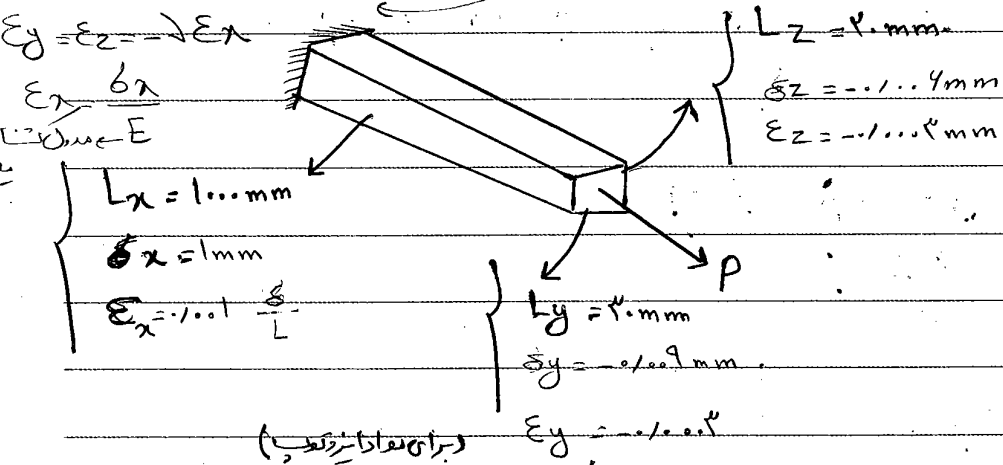 εy = εz = -ν εx
εx = σx / E
E → مدول
Lz = ۲۰ mm
δz = -۰/۰۰۶ mm
εz = -۰/۰۰۰۳ mm
Lx = ۱۰۰۰ mm
δx = ۱ mm
εx = ۰/۰۰۱ δ/L
P
Ly = ۳۰ mm
δy = -۰/۰۰۹ mm
εy = -۰/۰۰۰۳
(برای مواد ایزوتروپ)